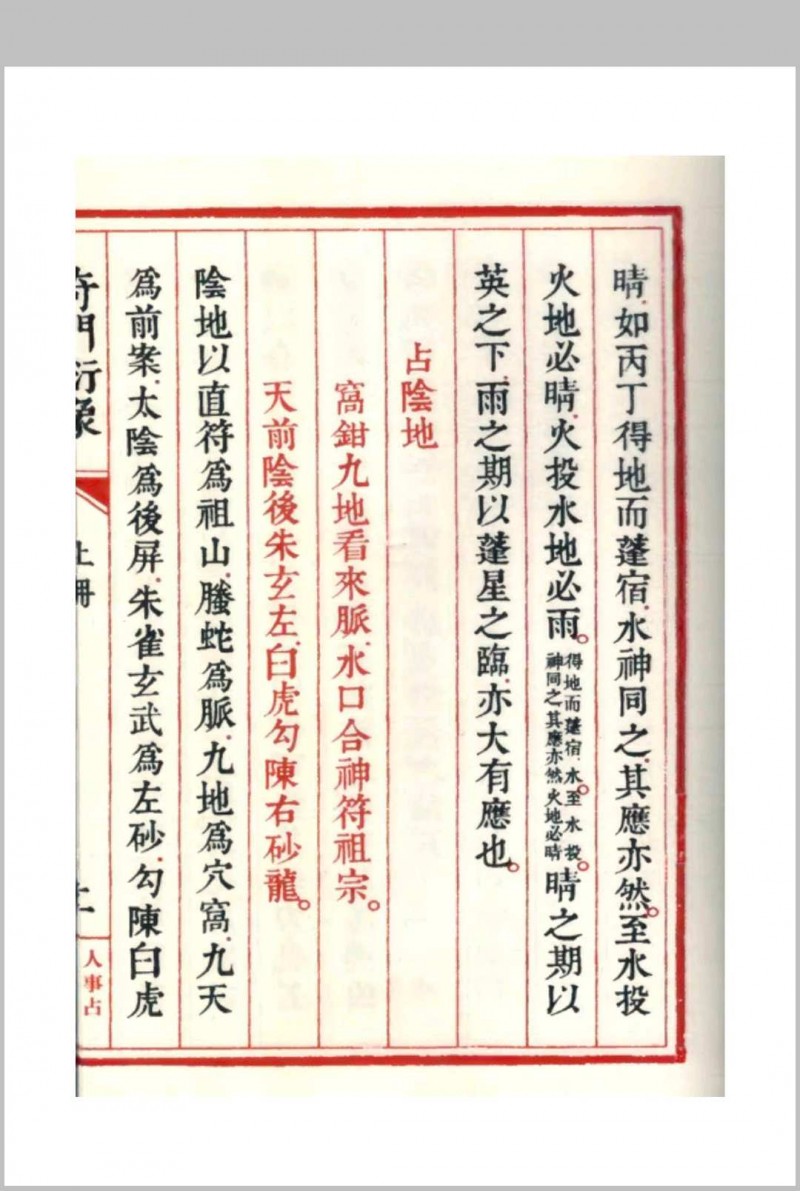 晴.如丙丁得地而蓬宿.水神同之.其應亦然。至水投
火地必晴.火投水地必雨。得地而蓬宿.水至水投。神同之.其應亦然火地必晴晴之期以
英之下.雨之期以蓬星之臨.亦大有應也。
占陰地
窩鉗九地看來脈.水口合神符祖宗。
天前陰後朱玄左.白虎勾陳右砂龍。
陰地以直符爲祖山.螣蛇爲脈.九地爲穴窩.九天
爲前案.太陰爲後屏.朱雀玄武爲左砂.勾陳白虎
奇門衍象
上冊
人事占